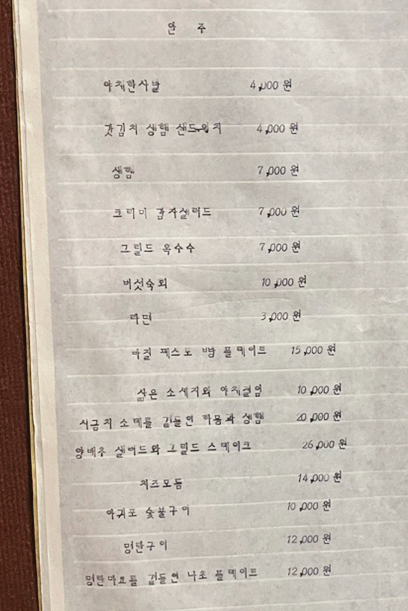 안 주
야채한사발 4,000 원
갓김치 생햄 샌드위치 4,000 원
생햄 7,000 원
크리미 감자샐러드 7,000 원
그릴드 옥수수 7,000 원
버섯숙회 10,000 원
라면 3,000 원
바질 페스토 밤 플레이트 15,000 원
삶은 소세지와 야채절임 10,000 원
시금치 소테를 곁들인 하몽과 생햄 20,000 원
양배추 샐러드와 그릴드 스테이크 26,000 원
치즈모듬 14,000 원
아귀포 숯불구이 10,000 원
명란구이 12,000 원
명란마요를 곁들인 나초 플레이트 12,000 원